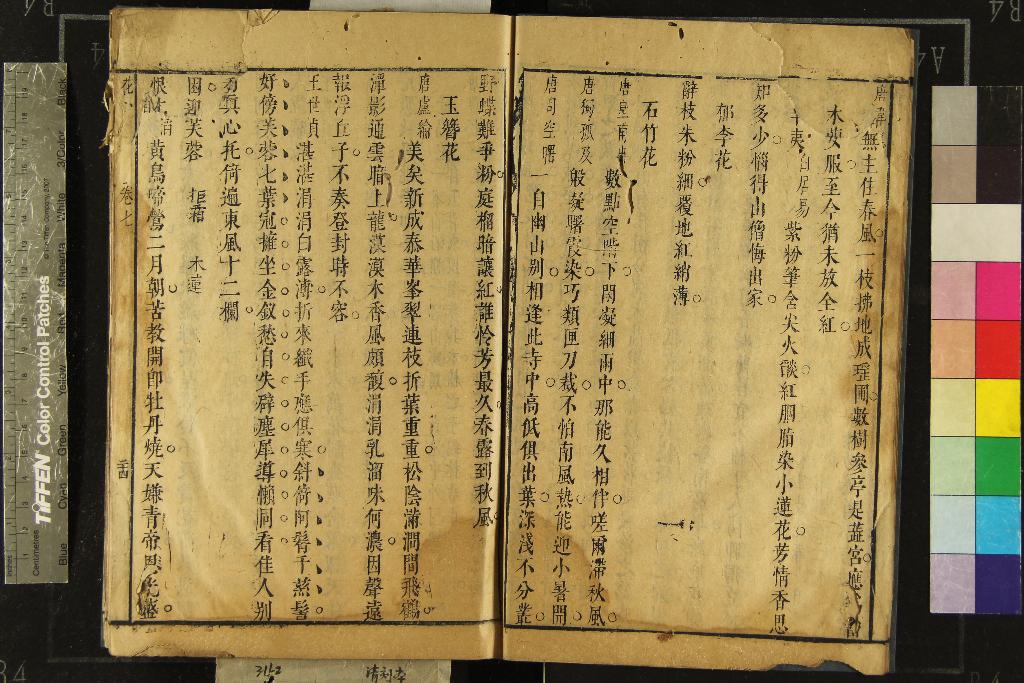 無主住春風一枝拂地成瑤圃數樹參亭是蕊宮應
木要服至今猶未放全紅
辛夷 白居易 紫粉筆含尖火䭘紅胭脂染小蓮花芳情香思
知多少惱得山僧悔出家
郁李花
辭枝朱粉細覆地紅綃薄
石竹花
唐皇甫冉 數點空階下閑凝細雨中那能久相伴嗟爾滯秋風
唐獨孤及 般疑曙霞染巧類匣刀裁不怕南風熱能迎小暑開
唐司空曙 一自幽山別相逢此寺中高低俱出葉深淺不分叢
野蝶難爭粉庭榴暗讓紅誰怜芳最久春露到秋風
玉簪花
唐盧綸 美矣新成泰華峯翠連枝折葉重重松陰滿澗間飛鶴
潭影通雲暗上龍漠漠木香風頗馥涓涓乳溜味何濃因聲遠
報浮丘子不奏登封時不容
王世貞 湛湛涓涓白露漙折來纖手應俱寒斜倚阿
好傍芙蓉七葉冠擁坐金釵愁自失辟塵犀導懶同看佳人別
有真心托倚遍東風十二欄
芙蓉 拒霜 木蓮
黃鳥啼鶯二月朝苦教開即牡丹燒天嫌青帝恩光盛
花 卷七 三十四
TIFFEN Color Control Patches
© The Tiffen Company, 2007
Centimetres
Inches
Blue
Cyan
Green
Yellow
Red
Magenta
White
3/Color
Black
R4
A4
B4